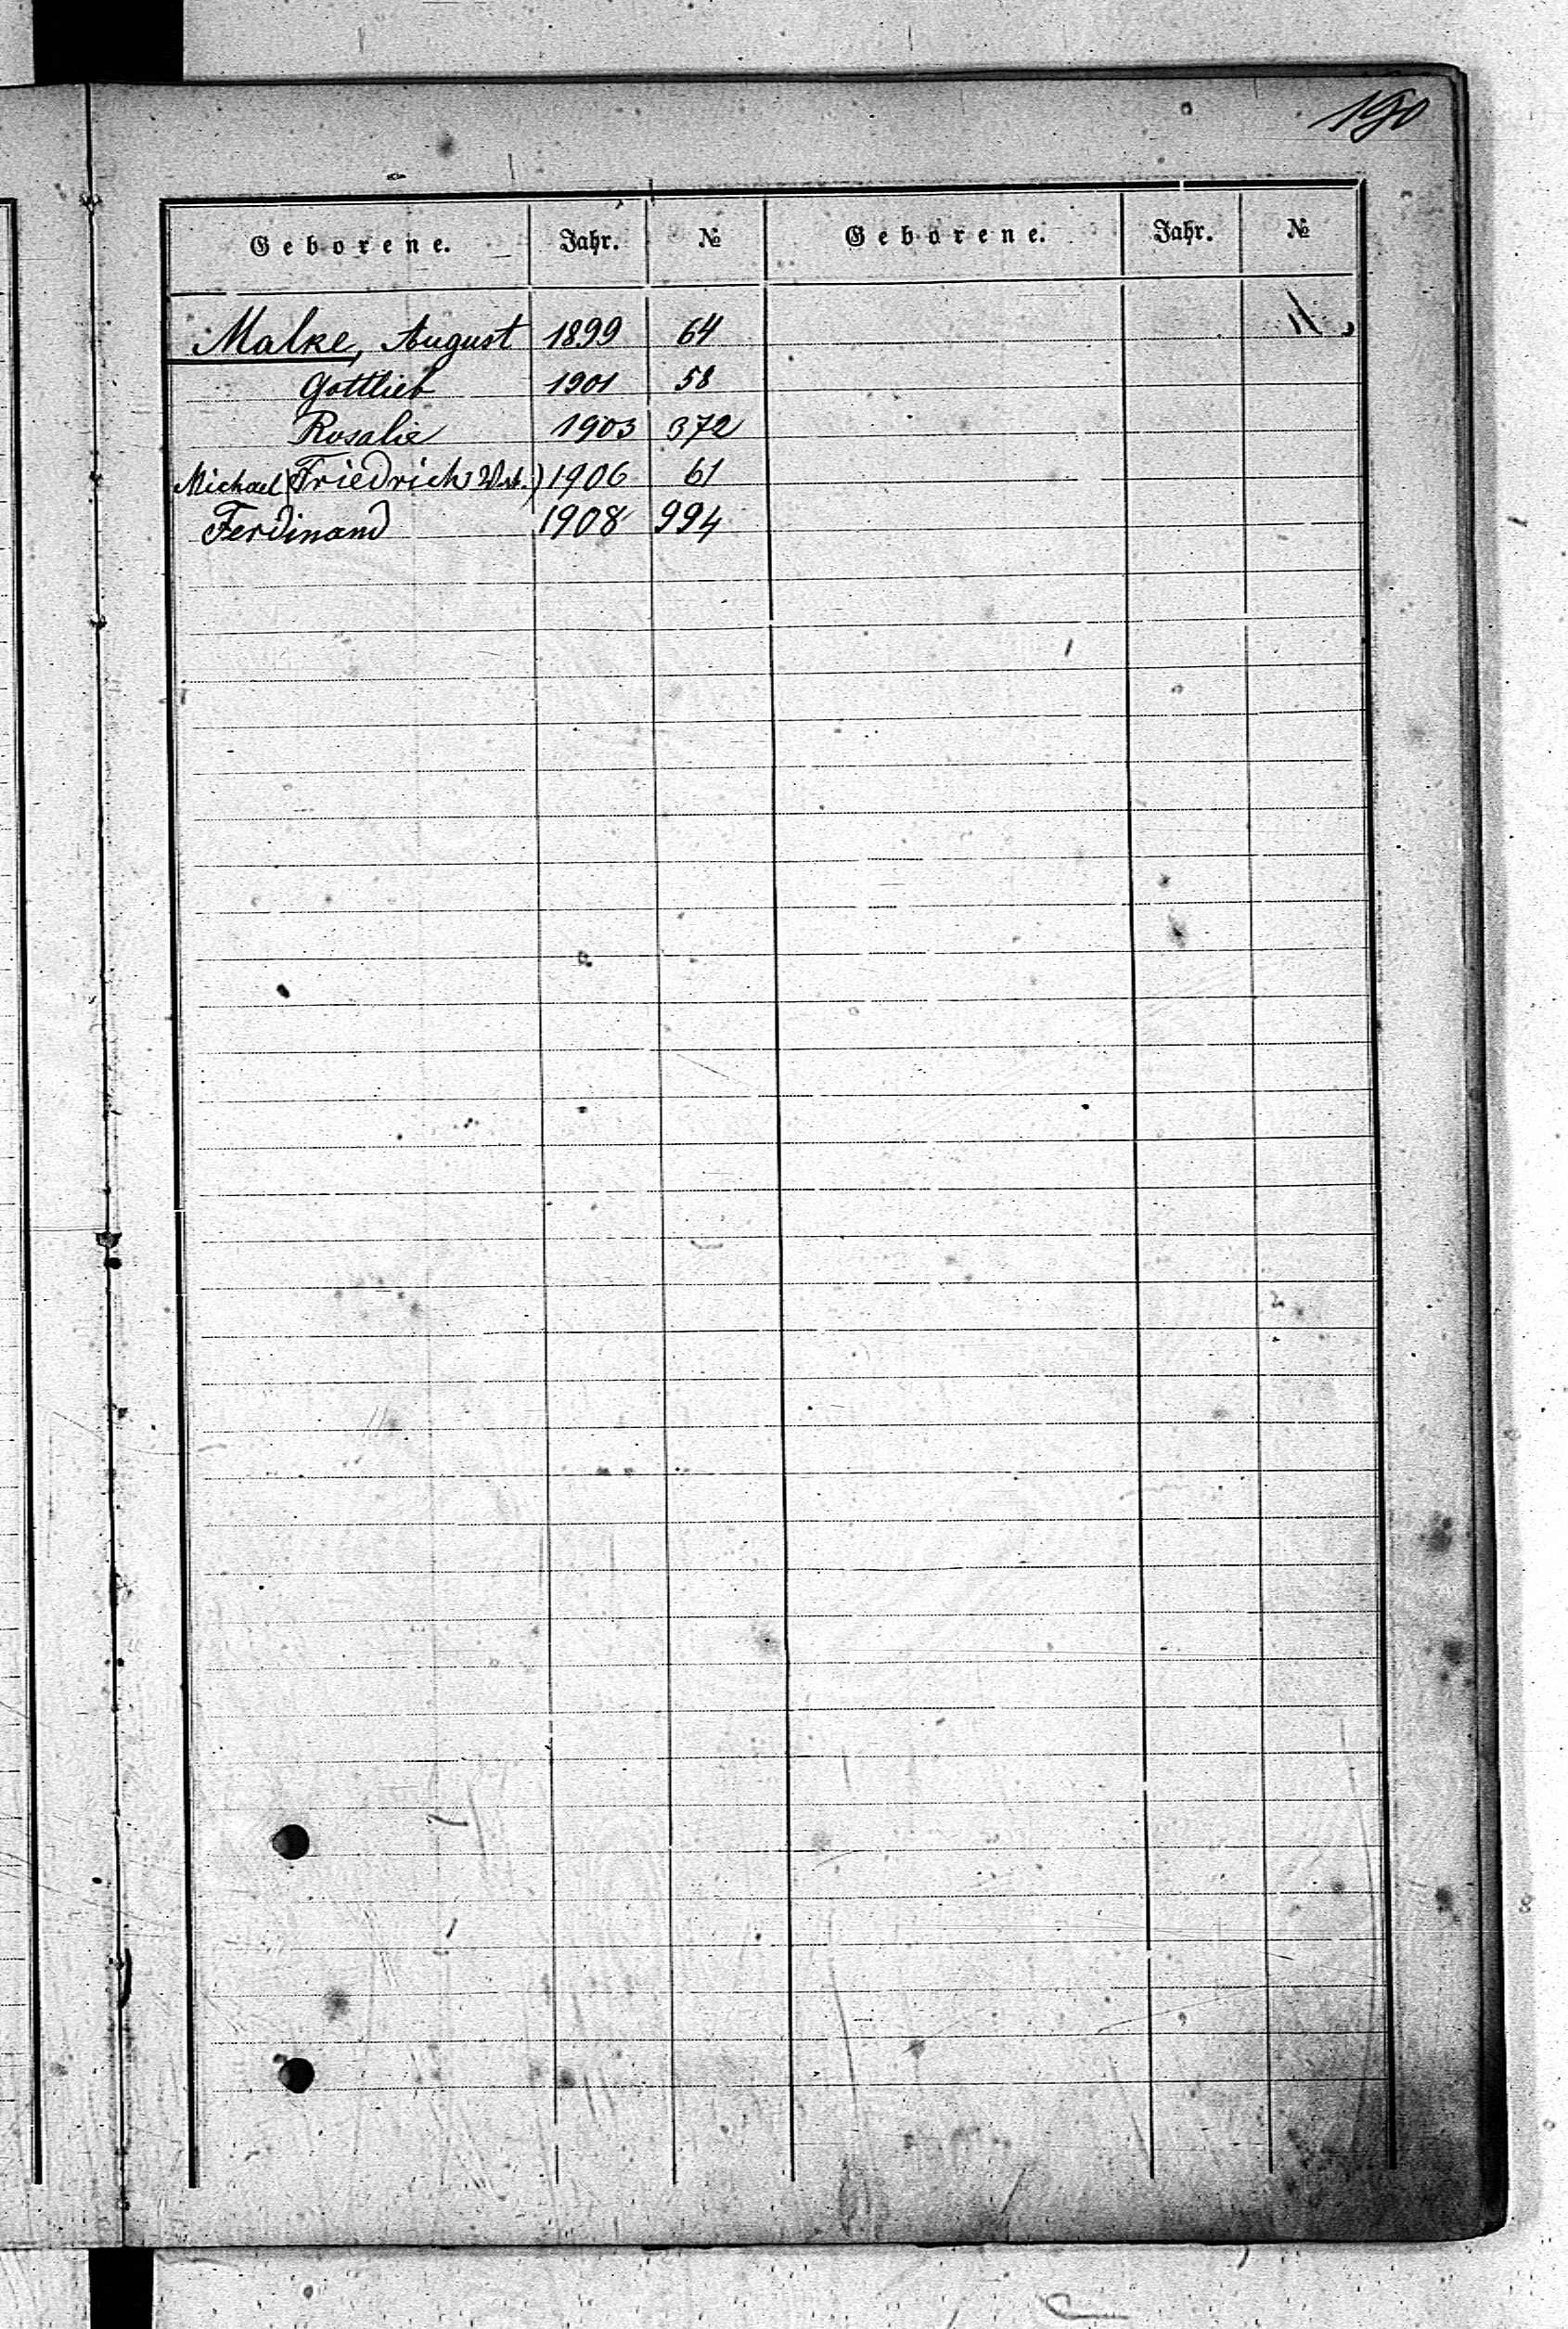 190
Geborene. Jahr. № Geborene. Jahr. №
Malke, August 1899 64
Gottlieb 1901 58
Rosalie 1903 372
Michael (Friedrich 1906 61
Ferdinand 1908 994